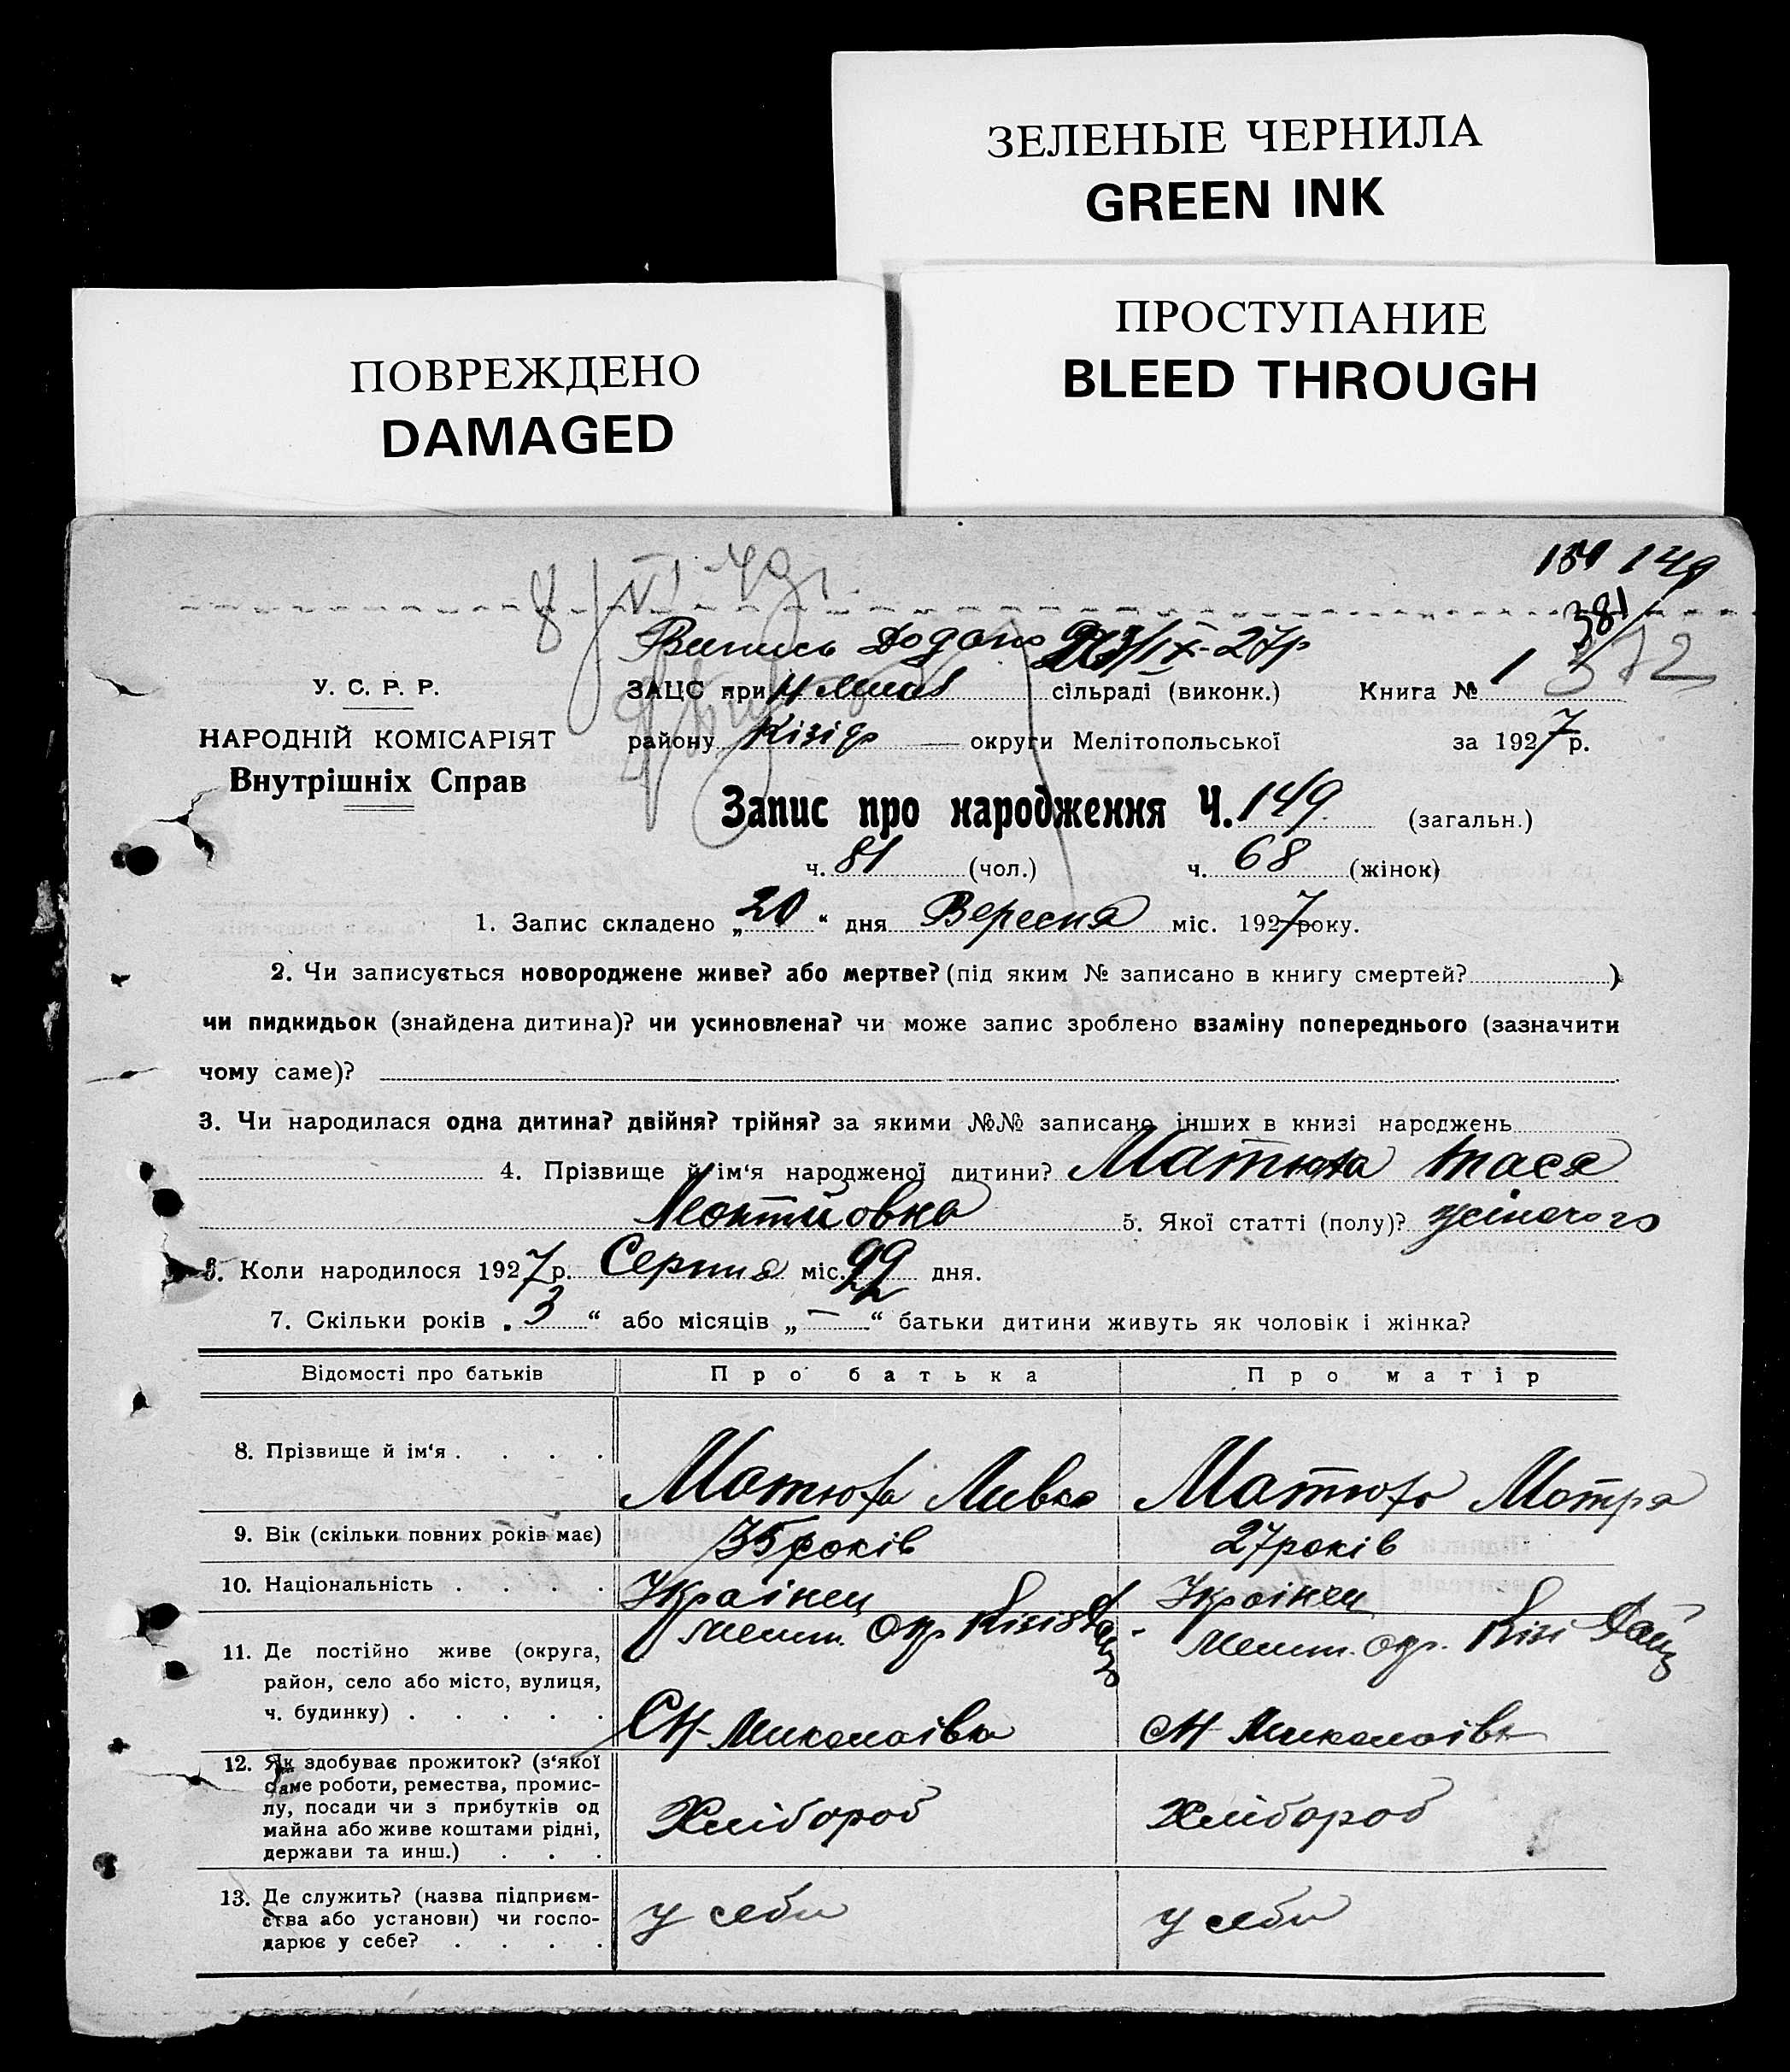 ЗЕЛЕНЫЕ ЧЕРНИЛА
GREEN INK
ПРОСТУПАНИЕ
BLEED THROUGH
ПОВРЕЖДЕНО
DAMAGED
149
381
372
Випись /IX-27р
У. С. Р. Р.
НАРОДНІЙ КОМІСАРІЯТ
Внутрішніх Справ
ЗАЦС при сільраді (виконк.) Книга № 1
району Кізіф округи Мелітопольської за 1927р.
Запис про народження Ч. 149 (загальн.)
ч. 81 (чол.) ч. 68 (жінок)
1. Запис складено „20“ дня Вересня міс. 1927року.
2. Чи записується новороджене живе? або мертве? (під яким № записано в книгу смертей? )
чи пидкидьок (знайдена дитина)? чи усиновлена? чи може запис зроблено взаміну попереднього (зазначити
чому саме)?
3. Чи народилася одна дитина? двійня? трійня? за якими №№ записано інших в книзі народжень
4. Прізвище й ім‘я народженої дитини? Матюха Тася
5. Якої статті (полу)? жіночого
6. Коли народилося 1927р. Серпня міс. 22 дня.
7. Скільки років „3“ або місяців „—“ батьки дитини живуть як чоловік і жінка?
Відомості про батьків Про батька Про матір
8. Прізвище й ім‘я . . . . Матюха Матюха Мотря
9. Вік (скільки повних років має) 35 років 27 років
10. Національність . . . . Українец Українец
11. Де постійно живе (округа,
район, село або місто, вулиця,
ч. будинку) . . . . .
Мелит. Окр. Мелит. Окр. Кізі
СН-Миколаівка СН-Миколаівк
12. Як здобуває прожиток? (з‘якої
саме роботи, ремества, промис-
лу, посади чи з прибутків од
майна або живе коштами рідні,
держави та инш.) . . .
Хлібороб Хлібороб
13. Де служить? (назва підприєм-
ства або установи) чи госпо-
дарює у себе? . . . .
у себи у себи